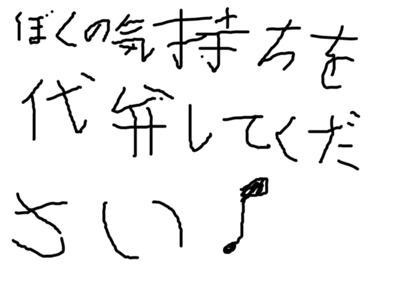 ぼくの気持ちを
代弁してくだ
さい♪